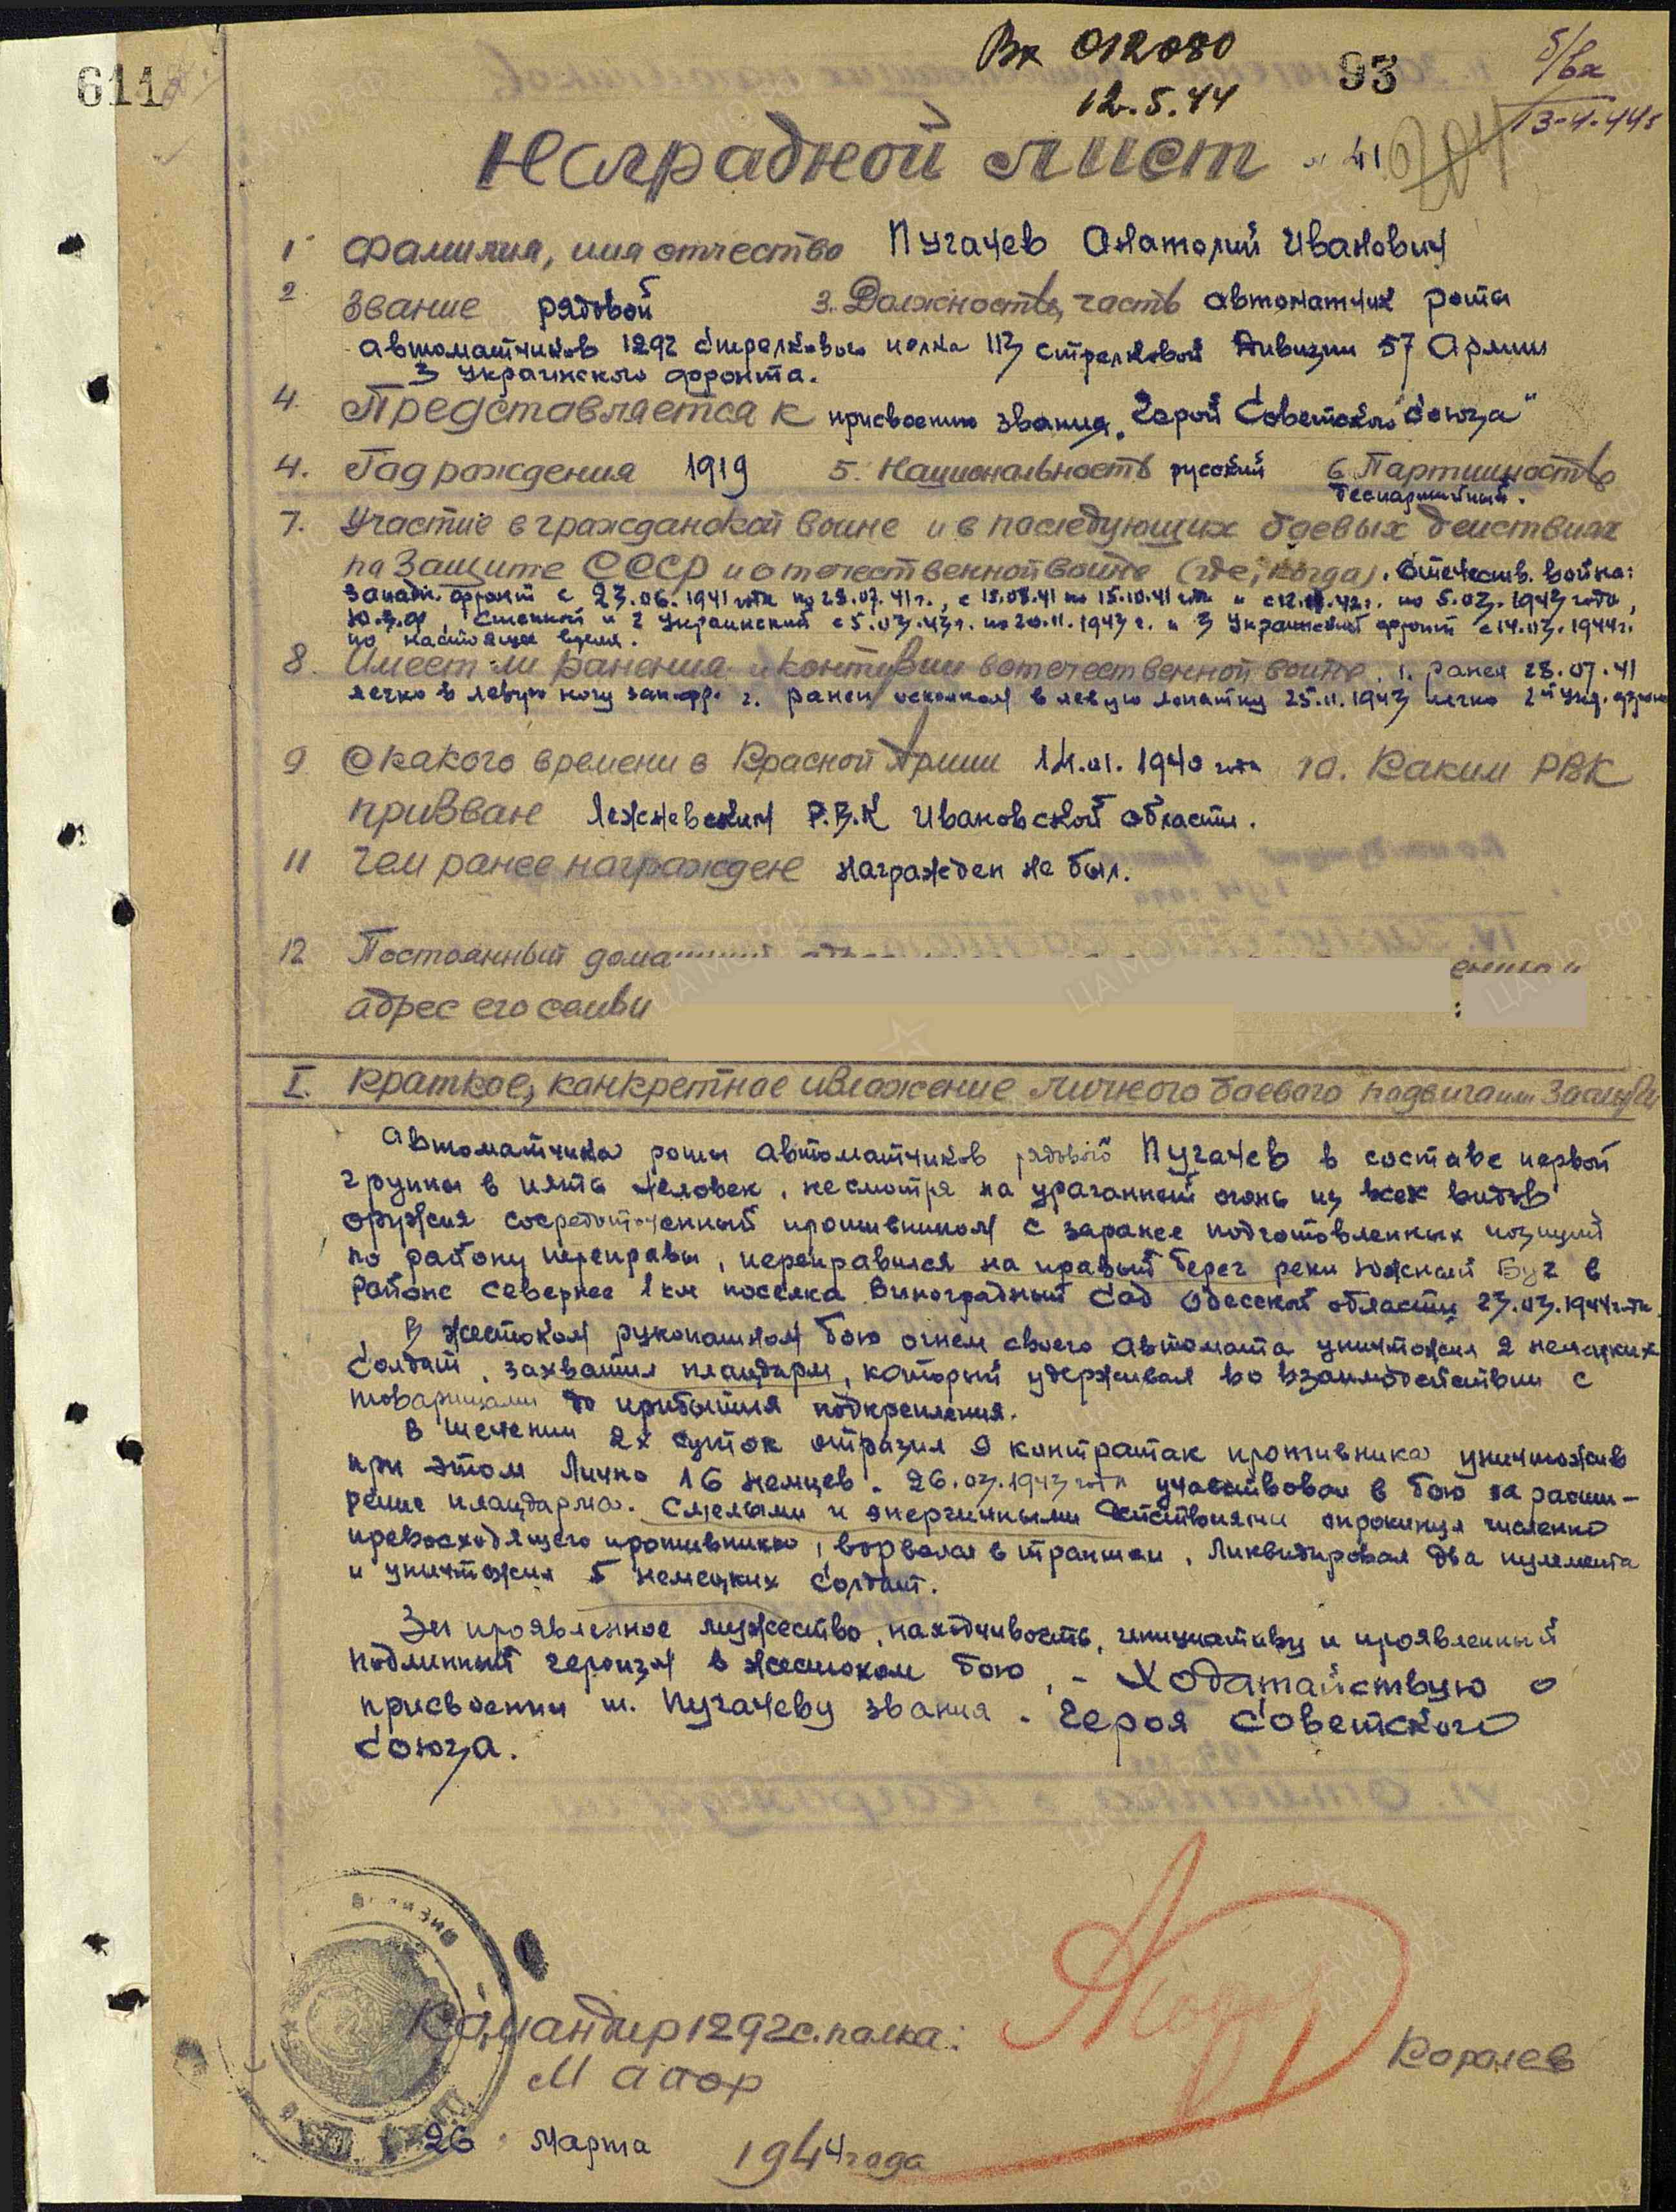 Вх 012080
93
б/вх
611
12.5.44
13-4-44г
Наградной лист № 41
1 Фамилия, имя отчество Пугачев Анатолий Иванович
2 Звание рядовой 3. Должность, часть автоматчик роты
автоматчиков 1292 стрелкового полка 113 стрелковой Дивизии 57 Армии
3 Украинского фронта.
4. Представляется к присвоению звания „Герой Советского Союза"
4. Год рождения 1919 5. Национальность русский 6 Партийность
беспартийный.
7. Участие в гражданской войне и в последующих боевых действиях
по защите СССР и отечественной войне (где, когда). Отечеств. война:
Западн. фронт с 23.06.1941 года по 28.07.41г., с 18.08.41 по 15.10.41 года и с 12. .42г. по 5.03.1943 года,
Степной и 2 Украинский с 5.03.43г. по 20.11.1943 г. и 3 Украинский фронт с 14.03.1944г.
по настоящее время.
8. Имеет ли ранения и контузии в отечественной войне. 1. ранен 28.07.41
легко в левую ногу зап.фр. 2. ранен осколком в левую лопатку 25.11.1943 легко 2й Укр. фронт
9 С какого времени в Красной Армии 14.01.1940 года 10. Каким РВК
призван Лежневским Р.В.К Ивановской области.
11 Чем ранее награжден награжден не был.
12 Постоянный дома
адрес его семьи :
I. Краткое, конкретное изложение личного боевого подвига или заслуги
Автоматчик роты автоматчиков рядовой Пугачев в составе первой
группы в пять человек, несмотря на ураганный огонь из всех видов
оружия сосредоточенный противником с заранее подготовленных позиций
по району переправы, переправился на правый берег реки Южный Буг в
районе севернее 1 км поселка Виноградный Сад Одесской области 23.03.1944 года.
В жестоком рукопашном бою огнем своего автомата уничтожил 2 немецких
солдат, захватил плацдарм, который удерживал во взаимодействии с
товарищами до прибытия подкрепления.
В течении 2х суток отразил 9 контратак противника уничтожив
при этом лично 16 немцев. 26.03.1943 года участвовал в бою за расши-
рение плацдарма. Смелыми и энергичными действиями опрокинул численно
превосходящего противника, ворвался в траншеи, ликвидировал два пулемета
и уничтожил 5 немецких солдат.
За проявленное мужество, находчивость, инициативу и проявленный
подлинный героизм в жестоком бою, - Ходатайствую о
присвоении т. Пугачеву звания - Героя Советского
Союза.
Командир 1292 с.полка:
Майор
Королев
26 Марта 1944 года